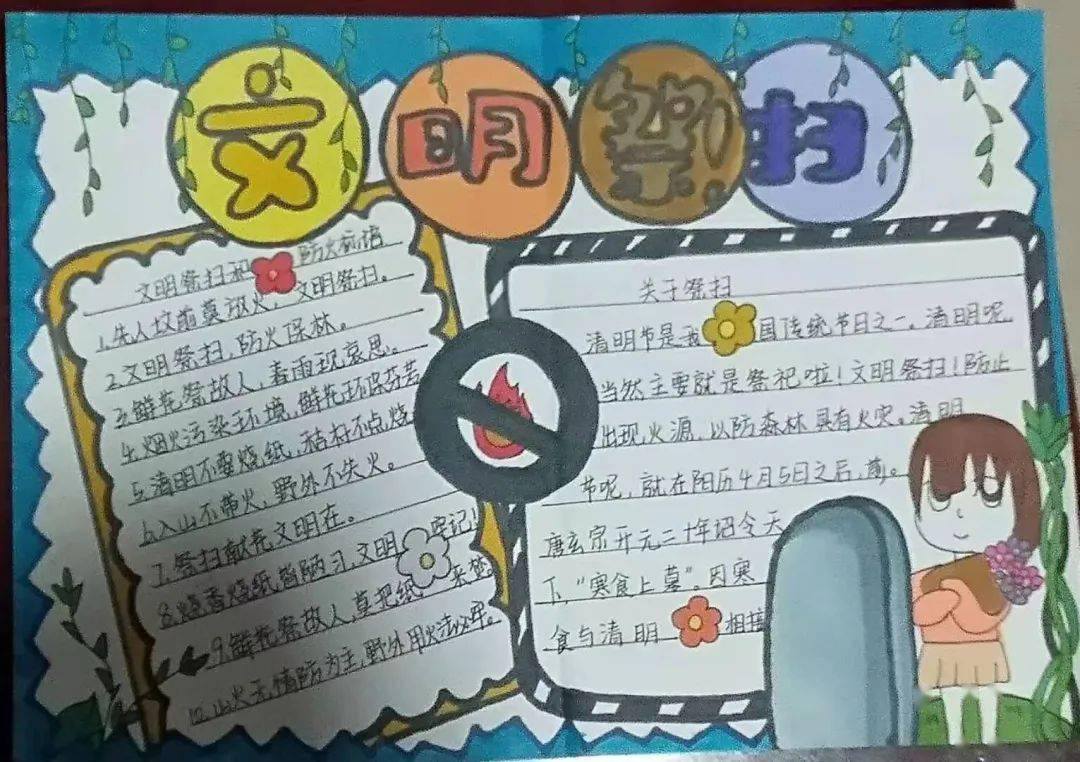 文明祭扫
文明祭扫和 防火标语
1.先人坟前莫放火，文明祭扫。
2.文明祭扫，防火保林。
3.鲜花祭故人，春雨现哀思。
4.烟火污染环境，鲜花环保芬芳
5.清明不要烧纸，秸秆不点烧
6.入山不带火，野外不失火。
7.祭扫献花文明在。
8.烧香烧纸皆陋习，文明 牢记！
9.鲜花祭故人，莫把纸 来焚
10.山火无情防为主，野外用火法必牢。
关于祭扫
清明节是我 国传统节日之一。清明呢，
当然主要就是祭祀啦！文明祭扫！防止
出现火源，以防森林具有火灾。清明
节呢，就在阳历4月5日之后，前。
唐玄宗开元二十年诏令天
下，“寒食上墓”。因寒
食与清明 相接